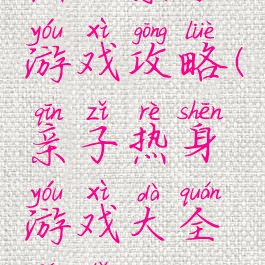 yóu xì gōng lüè
游戏攻略(
qīn zǐ rè shēn
亲子热身
yóu xì dà quán
游戏大全